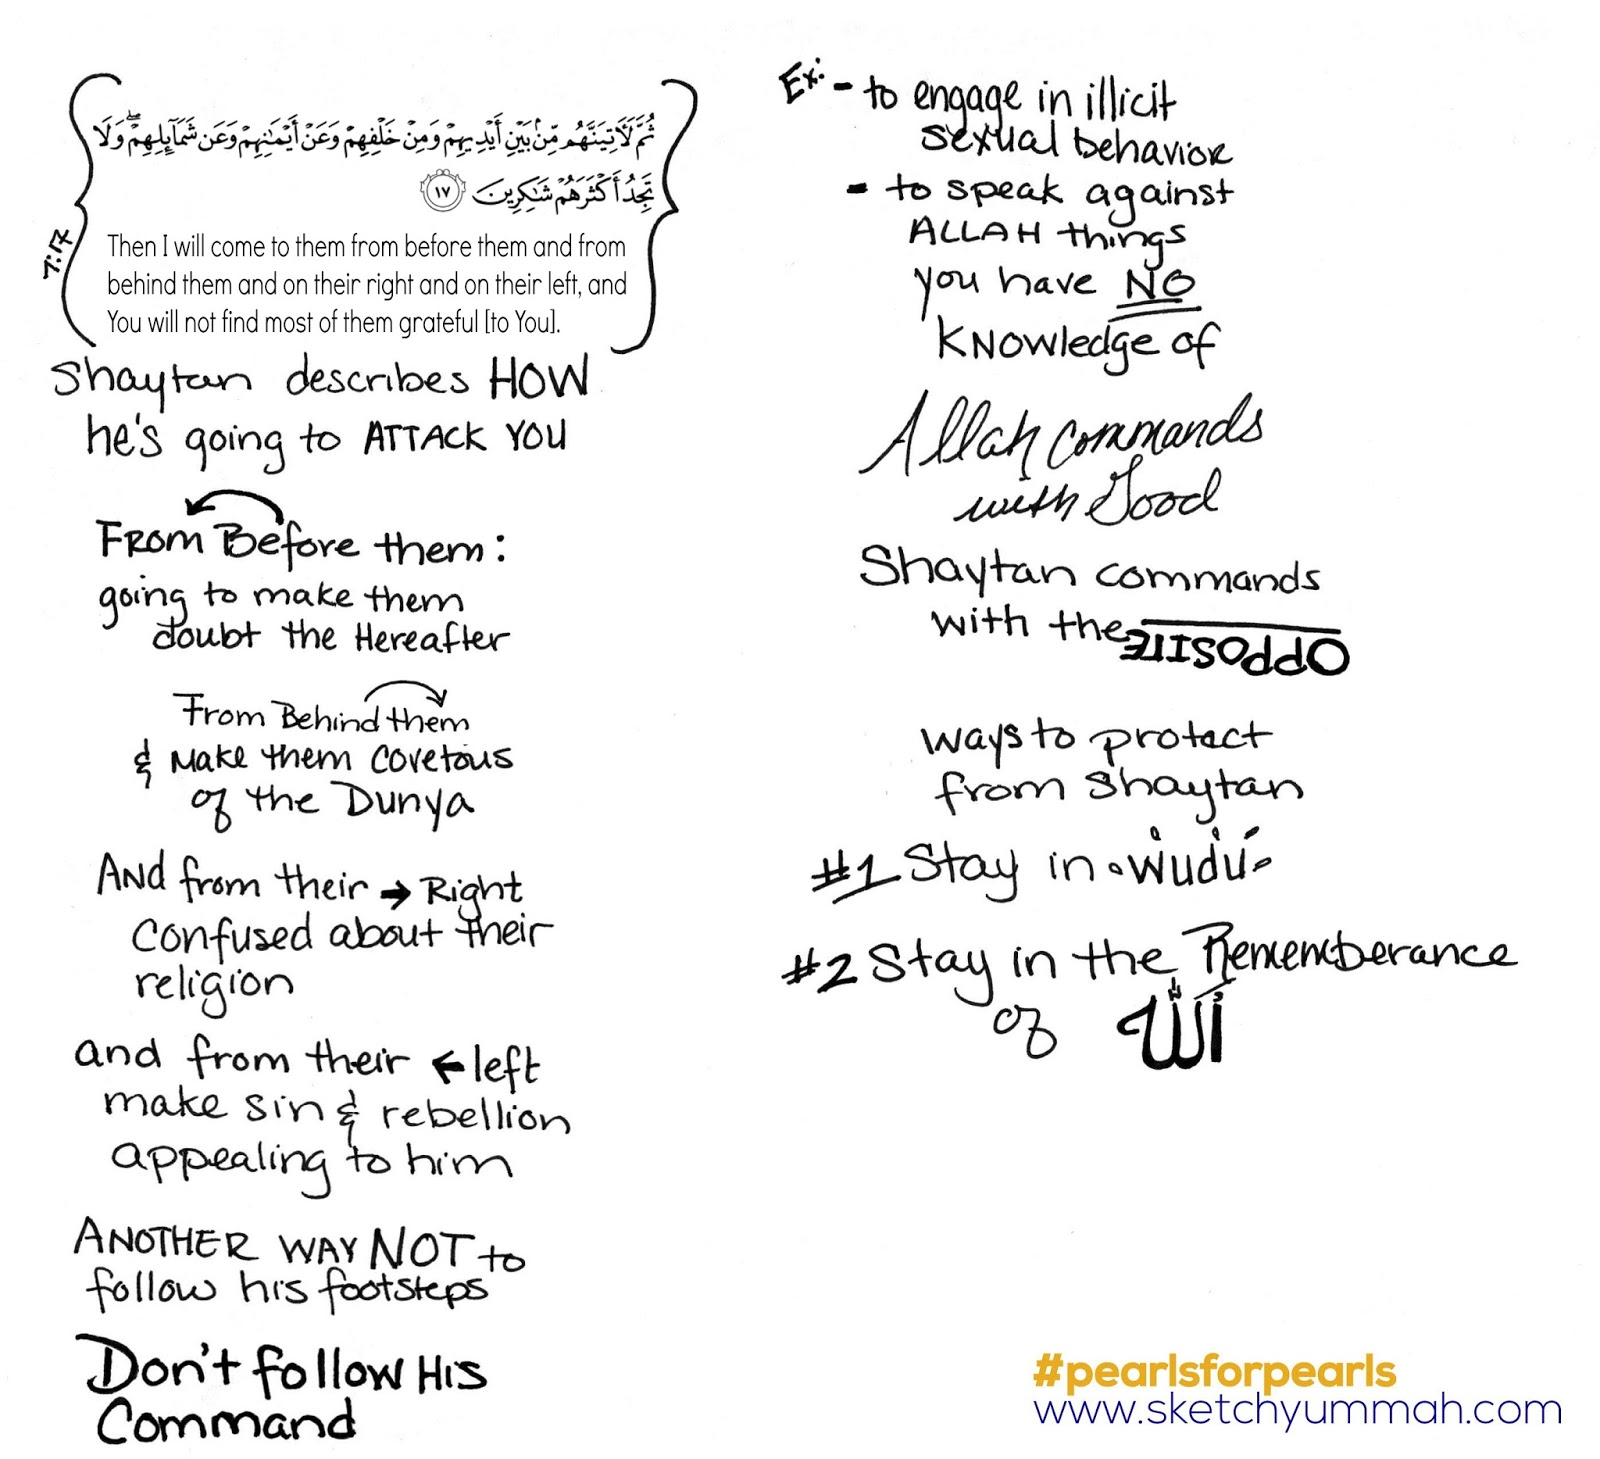 7:17
ثُمَّ لَأٓتِيَنَّهُم مِّنۢ بَيْنِ أَيْدِيهِمْ وَمِنْ خَلْفِهِمْ وَعَنْ أَيْمَـٰنِهِمْ وَعَن شَمَآئِلِهِمْ ۖ وَلَا
تَجِدُ أَكْثَرَهُمْ شَـٰكِرِينَ ١٧
Then I will come to them from before them and from
behind them and on their right and on their left, and
You will not find most of them grateful [to You].
Shaytan describes HOW
he's going to ATTACK YOU
From Before them:
going to make them
doubt the Hereafter
From Behind them
& make them covetous
of the Dunya
And from their → Right
confused about their
religion
and from their ← left
make sin & rebellion
appealing to him
ANOTHER WAY NOT to
follow his footsteps
Don't follow His
Command
Ex: - to engage in illicit
sexual behavior
- to speak against
ALLAH things
you have NO
Knowledge of
Allah commands
with Good
Shaytan commands
with the OPPOSITE
ways to protect
from Shaytan
#1 Stay in wudu
#2 Stay in the Rememberance
of الله
#pearlsforpearls
www.sketchyummah.com